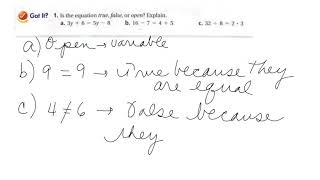 Got It? 1. Is the equation true, false, or open? Explain.
a. 3y + 6 = 5y − 8 b. 16 − 7 = 4 + 5 c. 32 ÷ 8 = 2 · 3
a) Open → variable
b) 9 = 9 → true because they
are equal
c) 4 ≠ 6 → false because
they